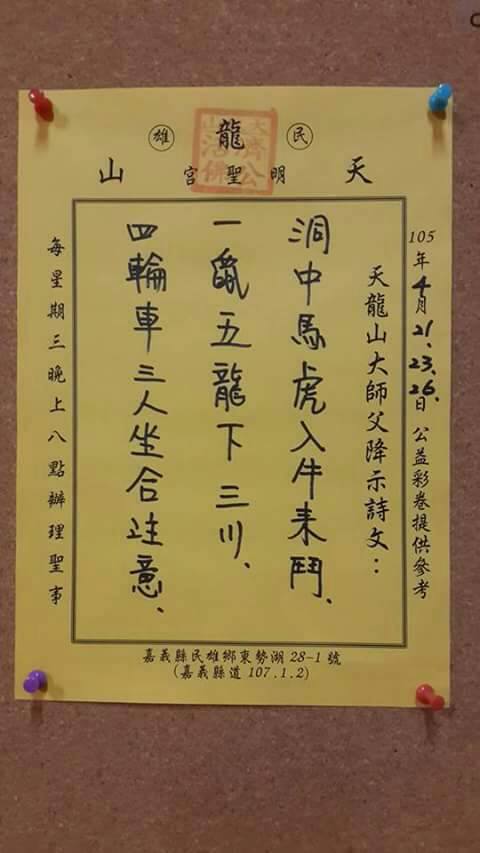 民 龍 雄
天 明聖宮 山
濟公
活佛
105年4月21.23.26.日 公益彩卷提供參考
天龍山大師父降示詩文：
洞中馬虎入牛来鬥、
一鼠五龍下三川、
四輪車三人坐合注意、
每星期三晚上八點辦理聖事
嘉義縣民雄鄉東勢湖28-1號
(嘉義縣道107.1.2)